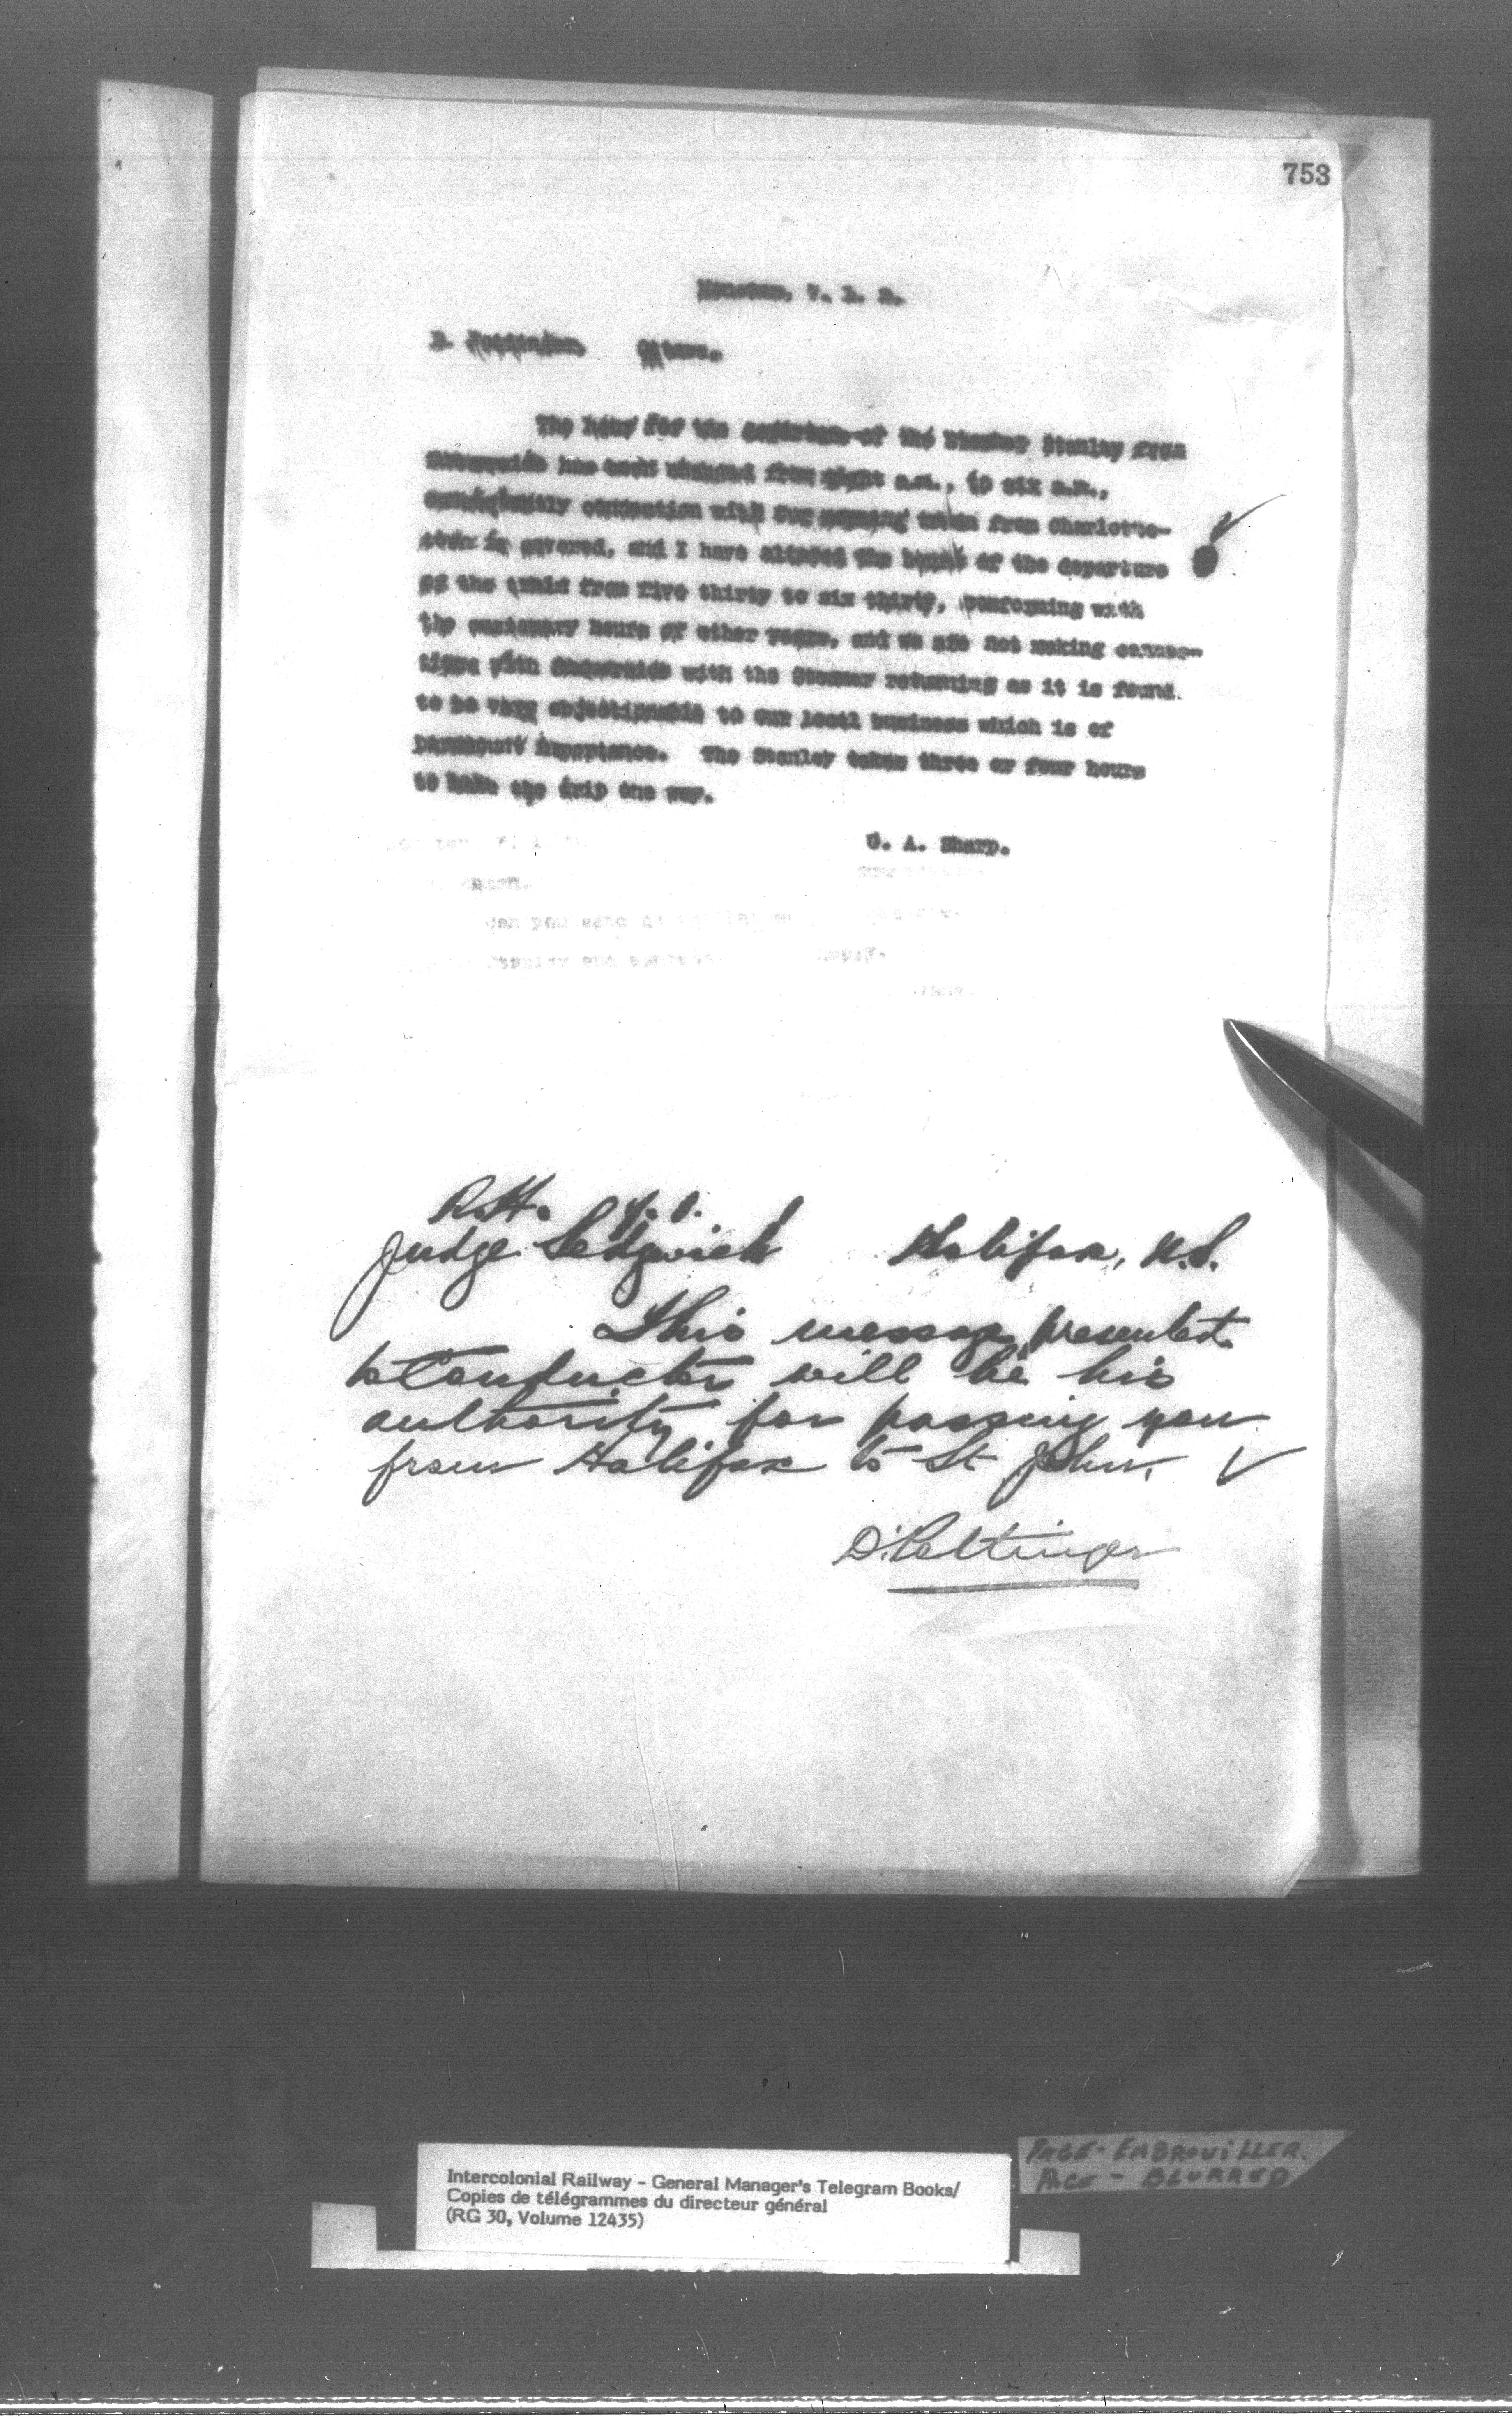 753
D. Pottinger Ottawa.
The hour for the departure of the Steamer Stanley from
Summerside has been changed from eight a.m., to six a.m.,
consequently connection with our morning train from Charlotte-
town is severed, and I have altered the hours of the departure
of the train from five thirty to six thirty, conforming with
the customary hours of other years, and we are not making connec-
tions with Summerside with the Steamer returning as it is found
to be very objectionable to our local business which is of
paramount importance. The Stanley takes three or four hours
to make the trip one way.
G. A. Sharp.
can you send
Stanley and
R.H.
Judge Sedgwick Halifax, N.S.
This message presented
to Conductor will be his
authority for passing you
from Halifax to St John.
D. Pottinger
Intercolonial Railway - General Manager's Telegram Books/
Copies de télégrammes du directeur général
(RG 30, Volume 12435)
PAGE - EMBROUILLER.
PAGE - BLURRED